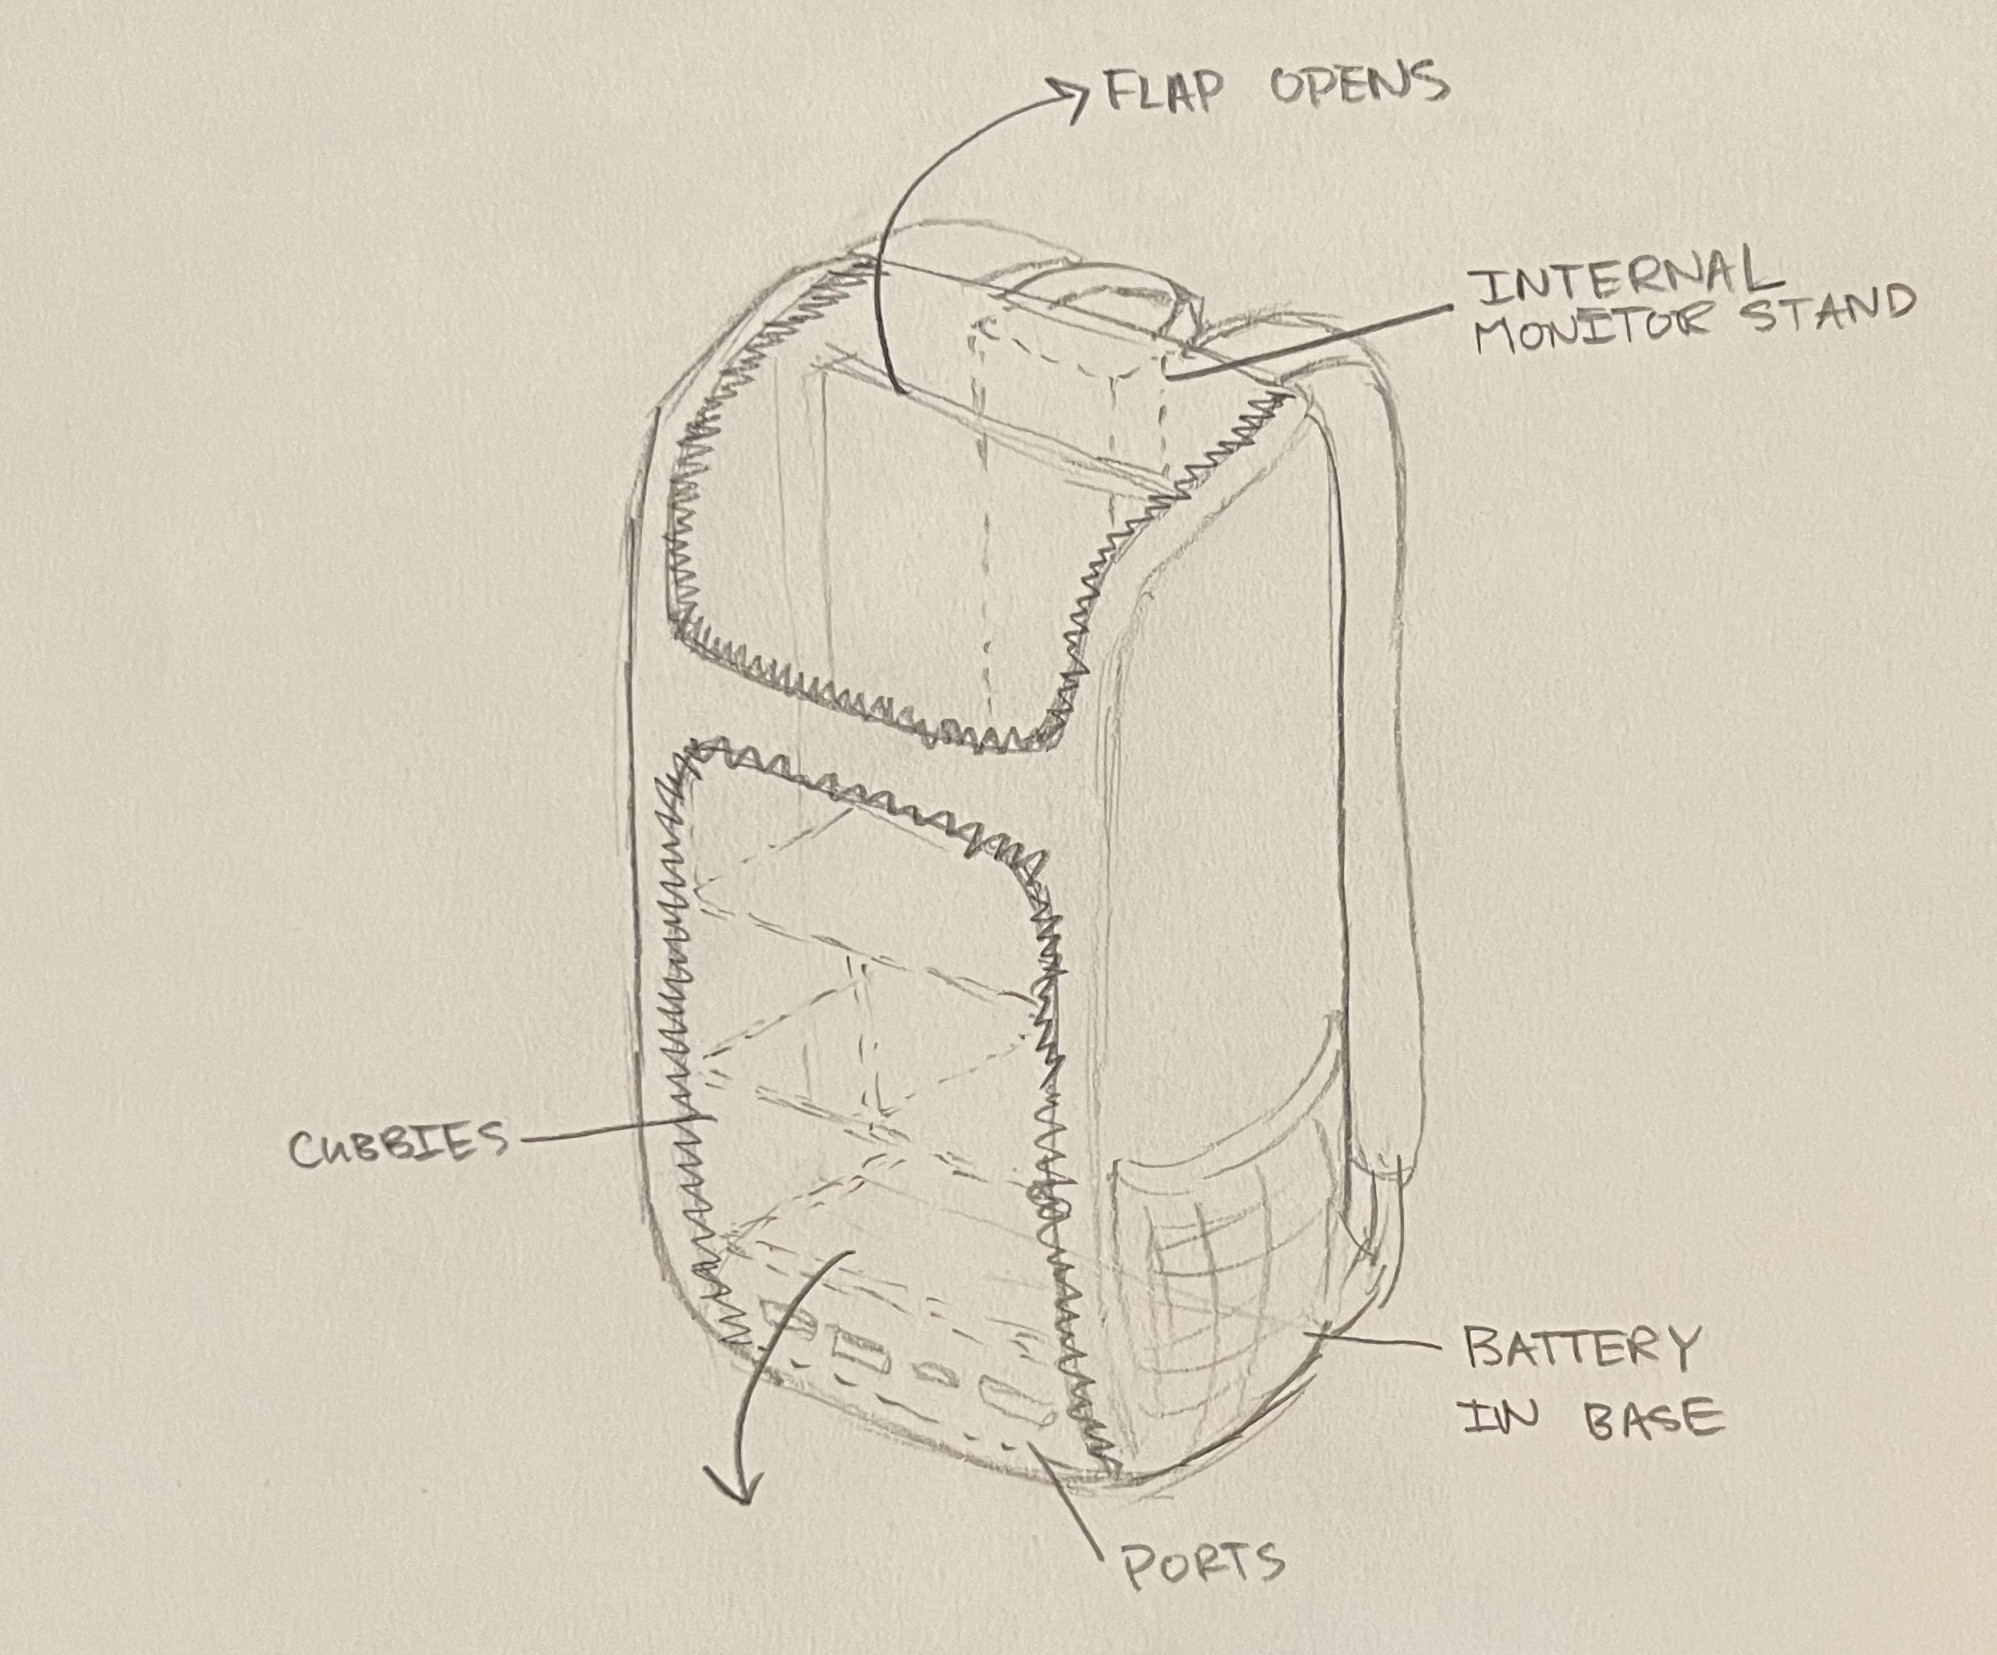 FLAP OPENS
INTERNAL
MONITOR STAND
CUBBIES
BATTERY
IN BASE
PORTS